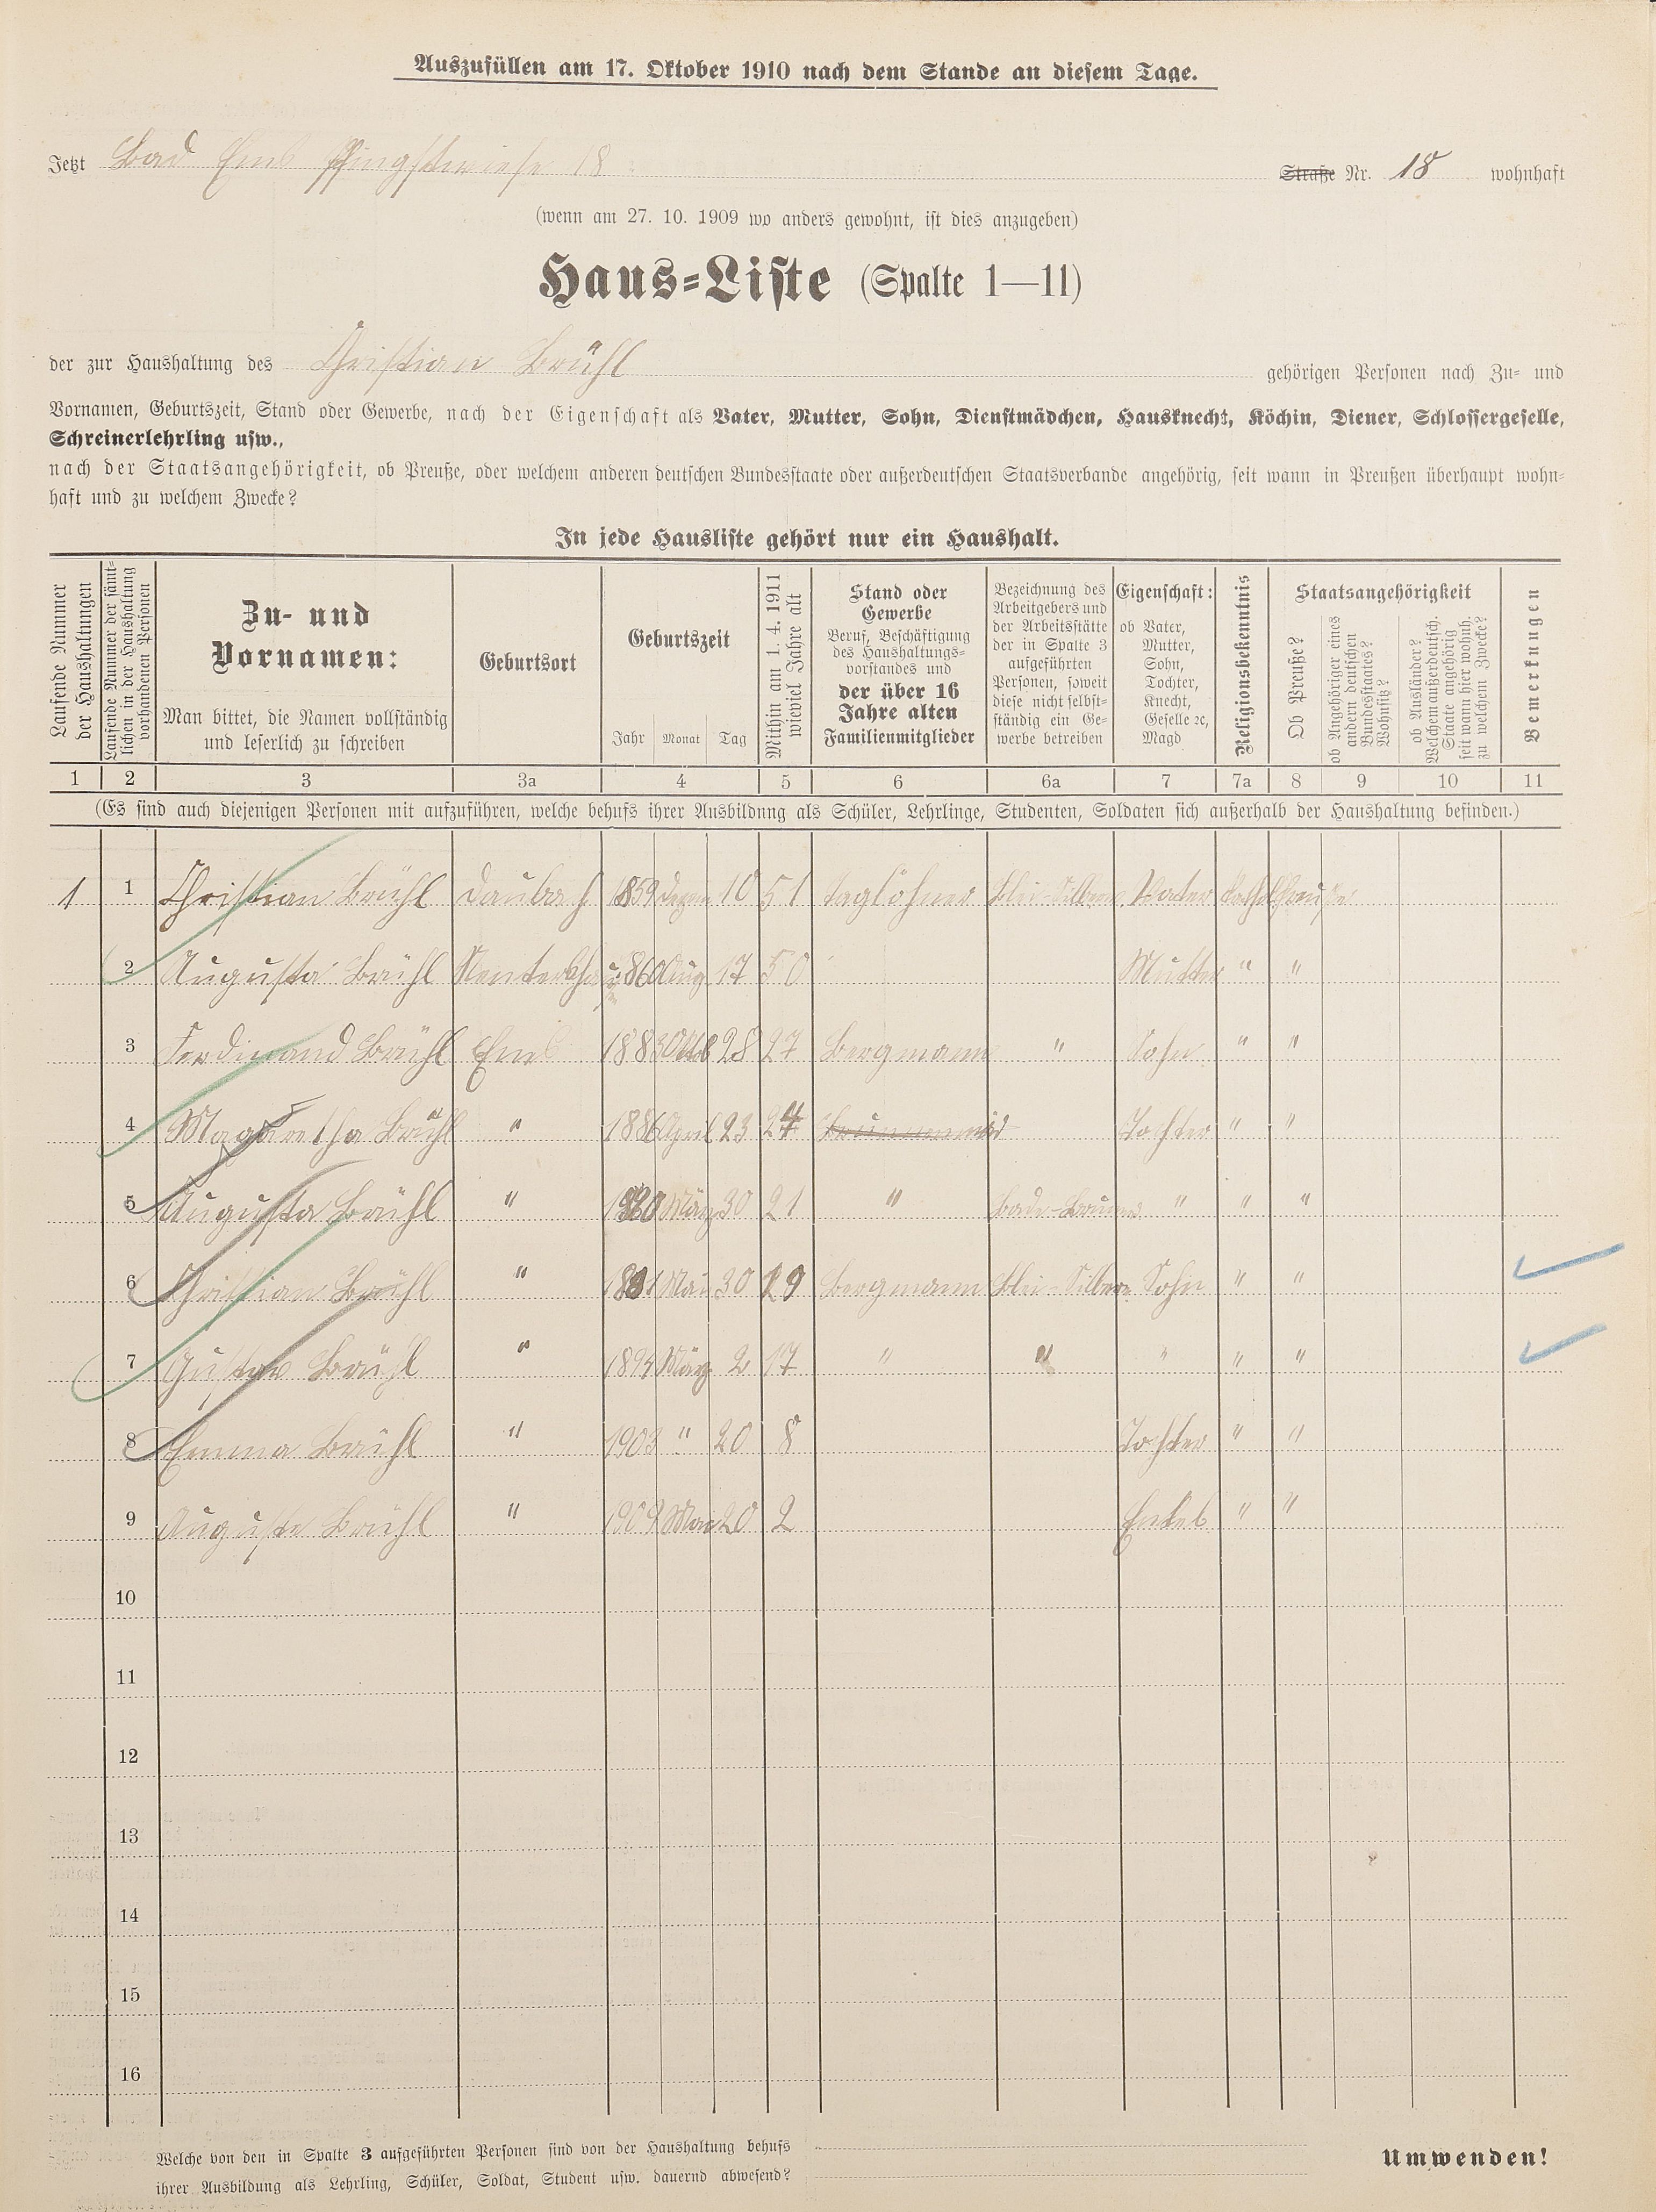 Auszufüllen am 17. Oktober 1910 nach dem Stande an diesem Tage.
Jetzt Bad Ems Pfingstwiese 18 Straße Nr. 18 wohnhaft
(wenn am 27. 10. 1909 wo anders gewohnt, ist dies anzugeben)
Haus-Liste (Spalte 1—11)
der zur Haushaltung des Christian Brühl gehörigen Personen nach Zu- und
Vornamen, Geburtszeit, Stand oder Gewerbe, nach der Eigenschaft als Vater, Mutter, Sohn, Dienstmädchen, Hausknecht, Köchin, Diener, Schlossergeselle,
Schreinerlehrling usw.,
nach der Staatsangehörigkeit, ob Preuße, oder welchem anderen deutschen Bundesstaate oder außerdeutschen Staatsverbande angehörig, seit wann in Preußen überhaupt wohn-
haft und zu welchem Zwecke?
In jede Hausliste gehört nur ein Haushalt.
Laufende Nummer
der Haushaltungen
Laufende Nummer der sämt-
lichen in der Haushaltung
vorhandenen Personen
Zu- und
Vornamen:
Man bittet, die Namen vollständig
und leserlich zu schreiben
Geburtsort
Geburtszeit
Jahr Monat Tag
Mithin am 1. 4. 1911
wieviel Jahre alt
Stand oder
Gewerbe
Beruf, Beschäftigung
des Haushaltungs-
vorstandes und
der über 16
Jahre alten
Familienmitglieder
Bezeichnung des
Arbeitgebers und
der Arbeitsstätte
der in Spalte 3
aufgeführten
Personen, soweit
diese nicht selbst-
ständig ein Ge-
werbe betreiben
Eigenschaft:
ob Vater,
Mutter,
Sohn,
Tochter,
Knecht,
Geselle ꝛc,
Magd
Religionsbekenntnis
Staatsangehörigkeit
Ob Preuße?
ob Angehöriger eines
andern deutschen
Bundesstaates?
Wohnsitz?
ob Ausländer?
Welchem außerdeutsch.
Staate angehörig
seit wann hier wohnh.
zu welchem Zwecke?
Bemerkungen
1 2 3 3a 4 5 6 6a 7 7a 8 9 10 11
(Es sind auch diejenigen Personen mit aufzuführen, welche behufs ihrer Ausbildung als Schüler, Lehrlinge, Studenten, Soldaten sich außerhalb der Haushaltung befinden.)
1 1 Christian Brühl Daubach 1859 10 51 Taglöhner Vater Preuße
2 Augusta Brühl 1860 Aug 17 50 Mutter " "
3 Ferdinand Brühl Ems 1883 28 27 Bergmann " Sohn " "
4 Magaretha Brühl " 1886 April 23 24 Tochter " "
5 Augusta Brühl " 1890 März 30 21 " Bade-Brunnen " " "
6 Christian Brühl " 1891 Mai 30 19 Bergmann Sohn " "
7 Gustav Brühl " 1894 März 2 17 " " " " "
8 Emma Brühl " 1903 " 20 8 Tochter " "
9 Auguste Brühl " 1909 Mai 20 2 Enkel " "
10
11
12
13
14
15
16
Welche von den in Spalte 3 aufgeführten Personen sind von der Haushaltung behufs
ihrer Ausbildung als Lehrling, Schüler, Soldat, Student usw. dauernd abwesend?
Umwenden!